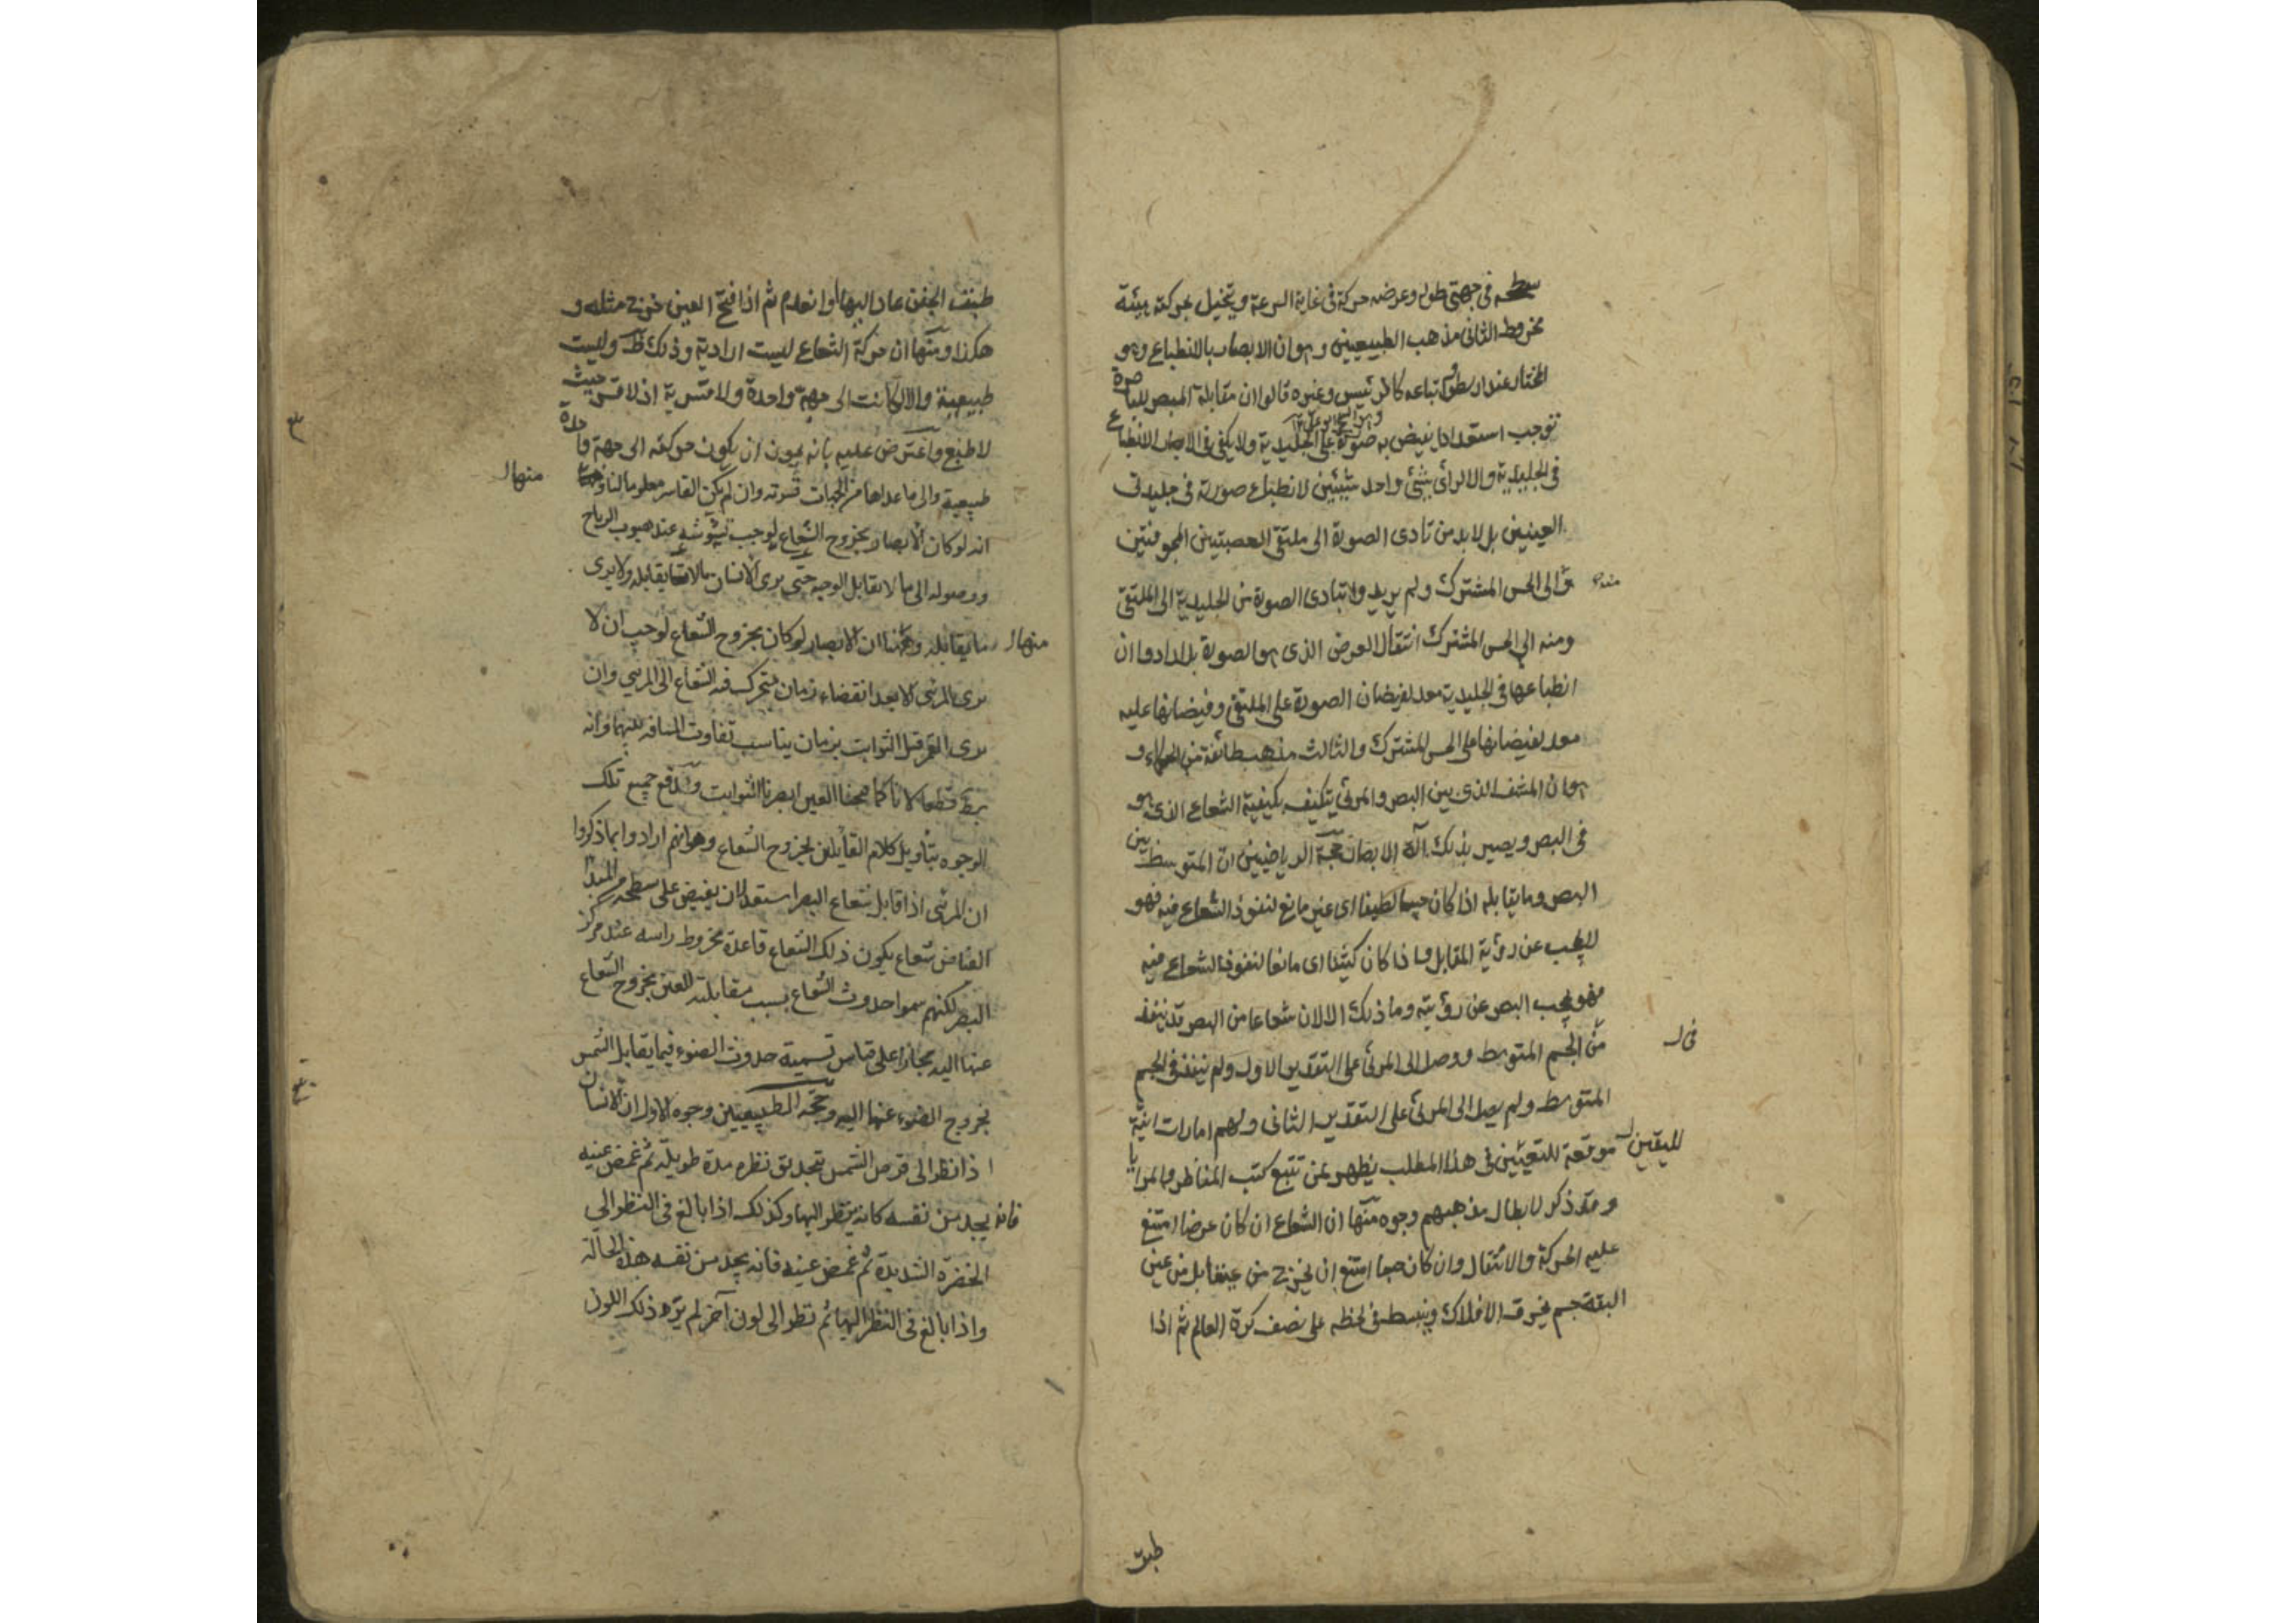 سطحه فى جهتى طوله وعرضه حركة فى غاية السرعة ويتخيل بحركته هيئة
مخروط الثانى مذهب الطبيعيين وهو ان الابصار بالانطباع وهو
المختار عند ارسطو واتباعه كالرئيس وغيره قالوا ان مقابلة المبصر للباصرة
توجب استعدادا يفيض به صورة على الجليدية ولا يكفى فى الابصار الانطباع
فى الجليدية والا لرأى شئ واحد شيئين لانطباع صورته فى جليدتى
العينين بل لابد من تادى الصورة الى ملتقى العصبتين المجوفتين
منه
والى الحس المشترك ولم يريدوا بتادى الصورة من الجليدية الى الملتقى
ومنه الى الحس المشترك انتقال العرض الذى هو الصورة بل ارادوا ان
انطباعها فى الجليدية معد لفيضان الصورة على الملتقى وفيضانها عليه
معد لفيضانها على الحس المشترك والثالث مذهب طائفة من الحكماء و
هو ان المشف الذى بين البصر والمرئى يتكيف بكيفية الشعاع الذى هو
فى البصر ويصير بذلك آلة الابصار حجة الرياضيين ان المتوسط بين
البصر وما يقابله اذا كان جسما لطيفا اى غير مانع لنفوذ الشعاع فيه فهو
لا يحجب عن رؤية المقابل واذا كان كثيفا اى مانعا لنفوذ الشعاع فيه
فهو يحجب البصر عن رؤيته وما ذلك الا لان شعاعا من البصر قد ينفذ
فى
من الجسم المتوسط ووصل الى المرئى على التقدير الاول ولم ينفذ فى الجسم
المتوسط ولم يصل الى المرئى على التقدير الثانى ولهم امارات انية
لليقين
موقعة للتعيين فى هذا المطلب يظهر لمن تتبع كتب المناظر والمرايا
وقد ذكر لابطال مذهبهم وجوه منها ان الشعاع ان كان عرضا امتنع
عليه الحركة والانتقال وان كان جسما امتنع ان يخرج من عيننا بل من عين
البقة جسم يخرق الافلاك وينبسط فى لحظة على نصف كرة العالم ثم اذا
طبق
طبق الجفن عاد اليها او انعدم ثم اذا فتح العين خرج مثله و
هكذا ومنها ان حركة الشعاع ليست ارادية وذلك ظ وليست
طبيعية والا لكانت الى جهة واحدة ولا قسرية اذ لا قسر حيث
لا طبع واعترض عليه بانه يجوز ان يكون حركته الى جهة واحدة
طبيعية والى ما عداها من الجهات قسرته وان لم يكن القاسر معلوما لنا
منها
انه لو كان الابصار بخروج الشعاع لوجب تشوشه عند هبوب الرياح
ووصوله الى ما لا يقابل الوجه حتى يرى الانسان ما لا يقابله ولا يرى
منها
ما يقابله ومنها ان الابصار لو كان بخروج الشعاع لوجب ان لا
يرى المرئى الا بعد انقضاء زمان يتحرك فيه الشعاع الى المرئى وان
يرى القمر قبل الثوابت بزمان يناسب تفاوت المسافة بينهما وانه
بط قطعا لانا كما فتحنا العين ابصرنا الثوابت وتدفع جميع تلك
الوجوه بتأويل كلام القائلين بخروج الشعاع وهو انهم ارادوا بما ذكروا
ان المرئى اذا قابل شعاع البصر استعد لان يفيض على سطحه من المبدأ
الفياض شعاع يكون ذلك الشعاع قاعدة مخروط راسه عند مركز
البصر لكنهم سموا حدوث الشعاع بسبب مقابلته للعين بخروج الشعاع
عنها اليه مجازا على قياس تسمية حدوث الضوء فيما يقابل الشمس
بخروج الضوء عنها اليه وحجة الطبيعيين وجوه الاول ان الانسان
اذا نظر الى قرص الشمس بتحديق نظره مدة طويلة ثم غمض عينيه
فانه يجد من نفسه كانه ينظر اليها وكذلك اذا بالغ فى النظر الى
الخضرة الشديدة ثم غمض عينيه فانه يجد من نفسه هذه الحالة
واذا بالغ فى النظر اليها ثم نظر الى لون آخر لم يره ذلك اللون